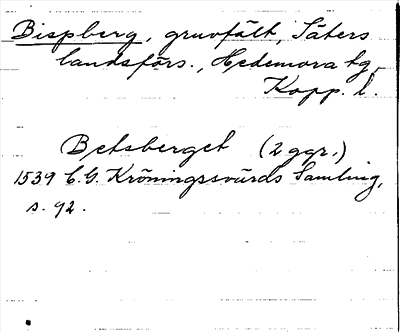 Bispberg, gruvfält, Säters
landsförs., Hedemora tg,
Kopp. l.
Betsberget (2 ggr.)
1539 C.G. Kröningssvärds Samling,
s. 92.